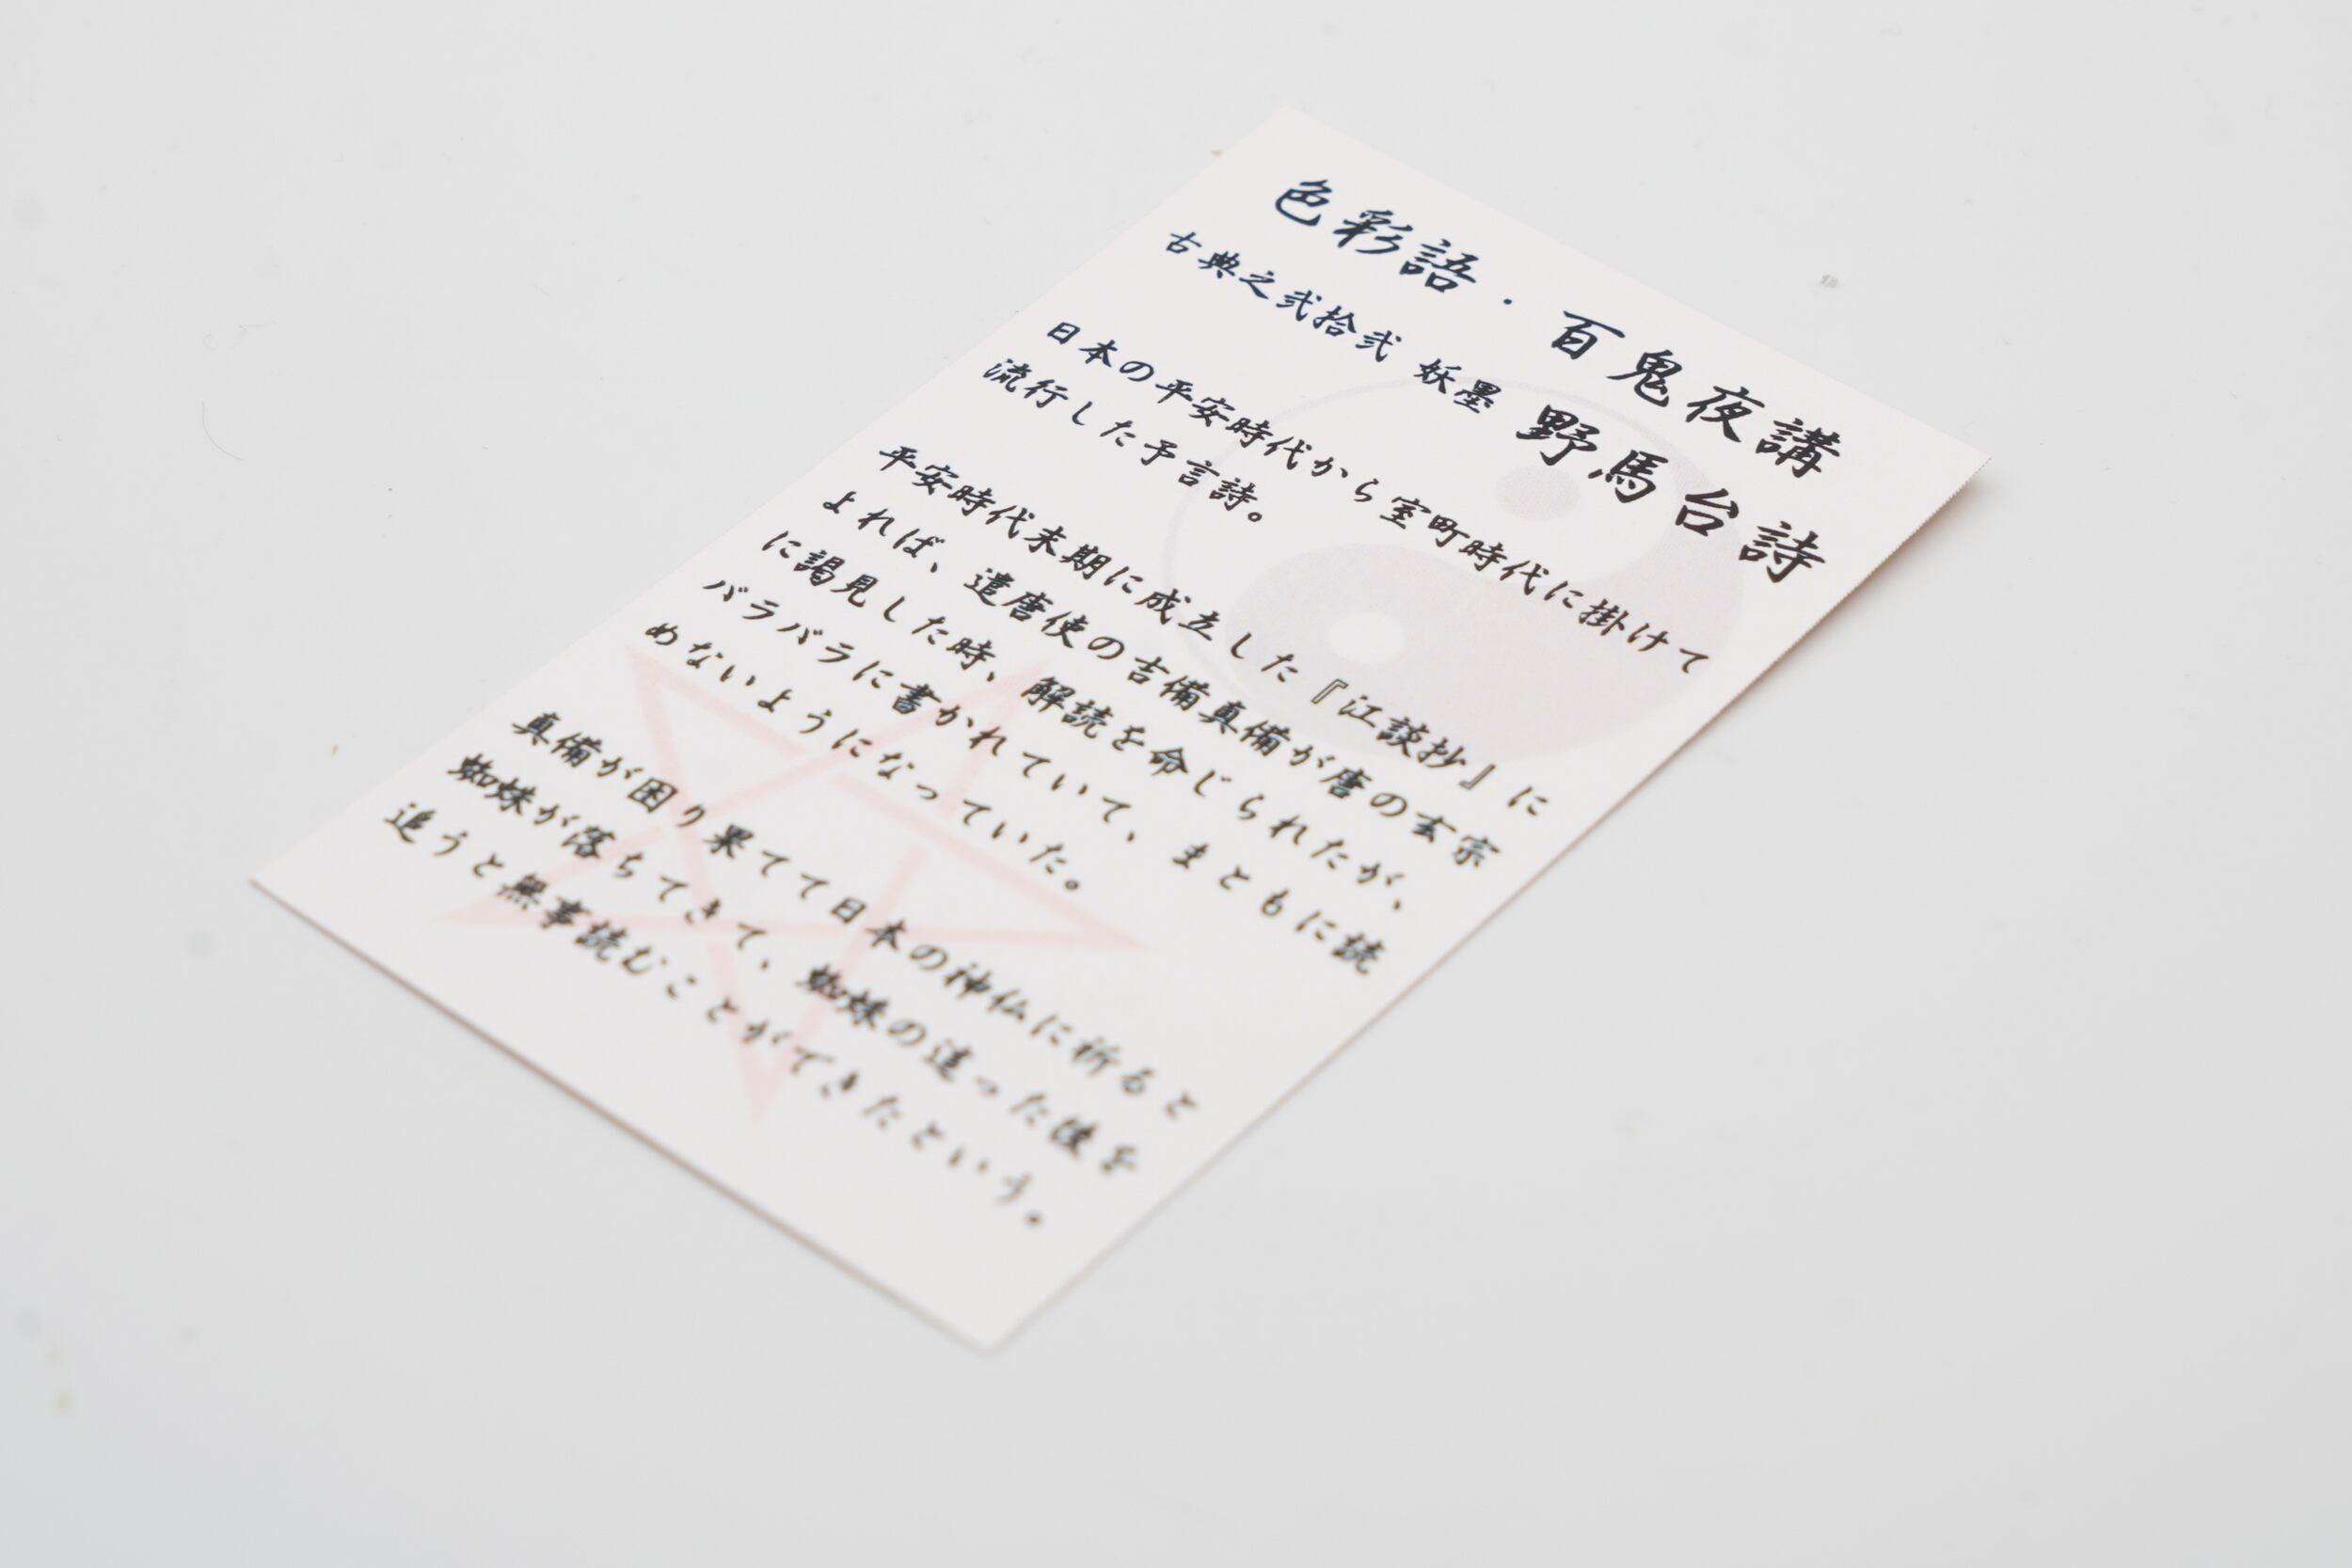 色彩語・百鬼夜講
古典之弐拾弐 妖墨 野馬台詩
日本の平安時代から室町時代に掛けて
流行した予言詩。
平安時代末期に成立した『江談抄』に
よれば、遣唐使の吉備真備が唐の玄宗
に謁見した時、解読を命じられたが、
バラバラに書かれていて、まともに読
めないようになっていた。
真備が困り果てて日本の神仏に祈ると
蜘蛛が落ちてきて、蜘蛛の這った後を
追うと無事読むことができたという。